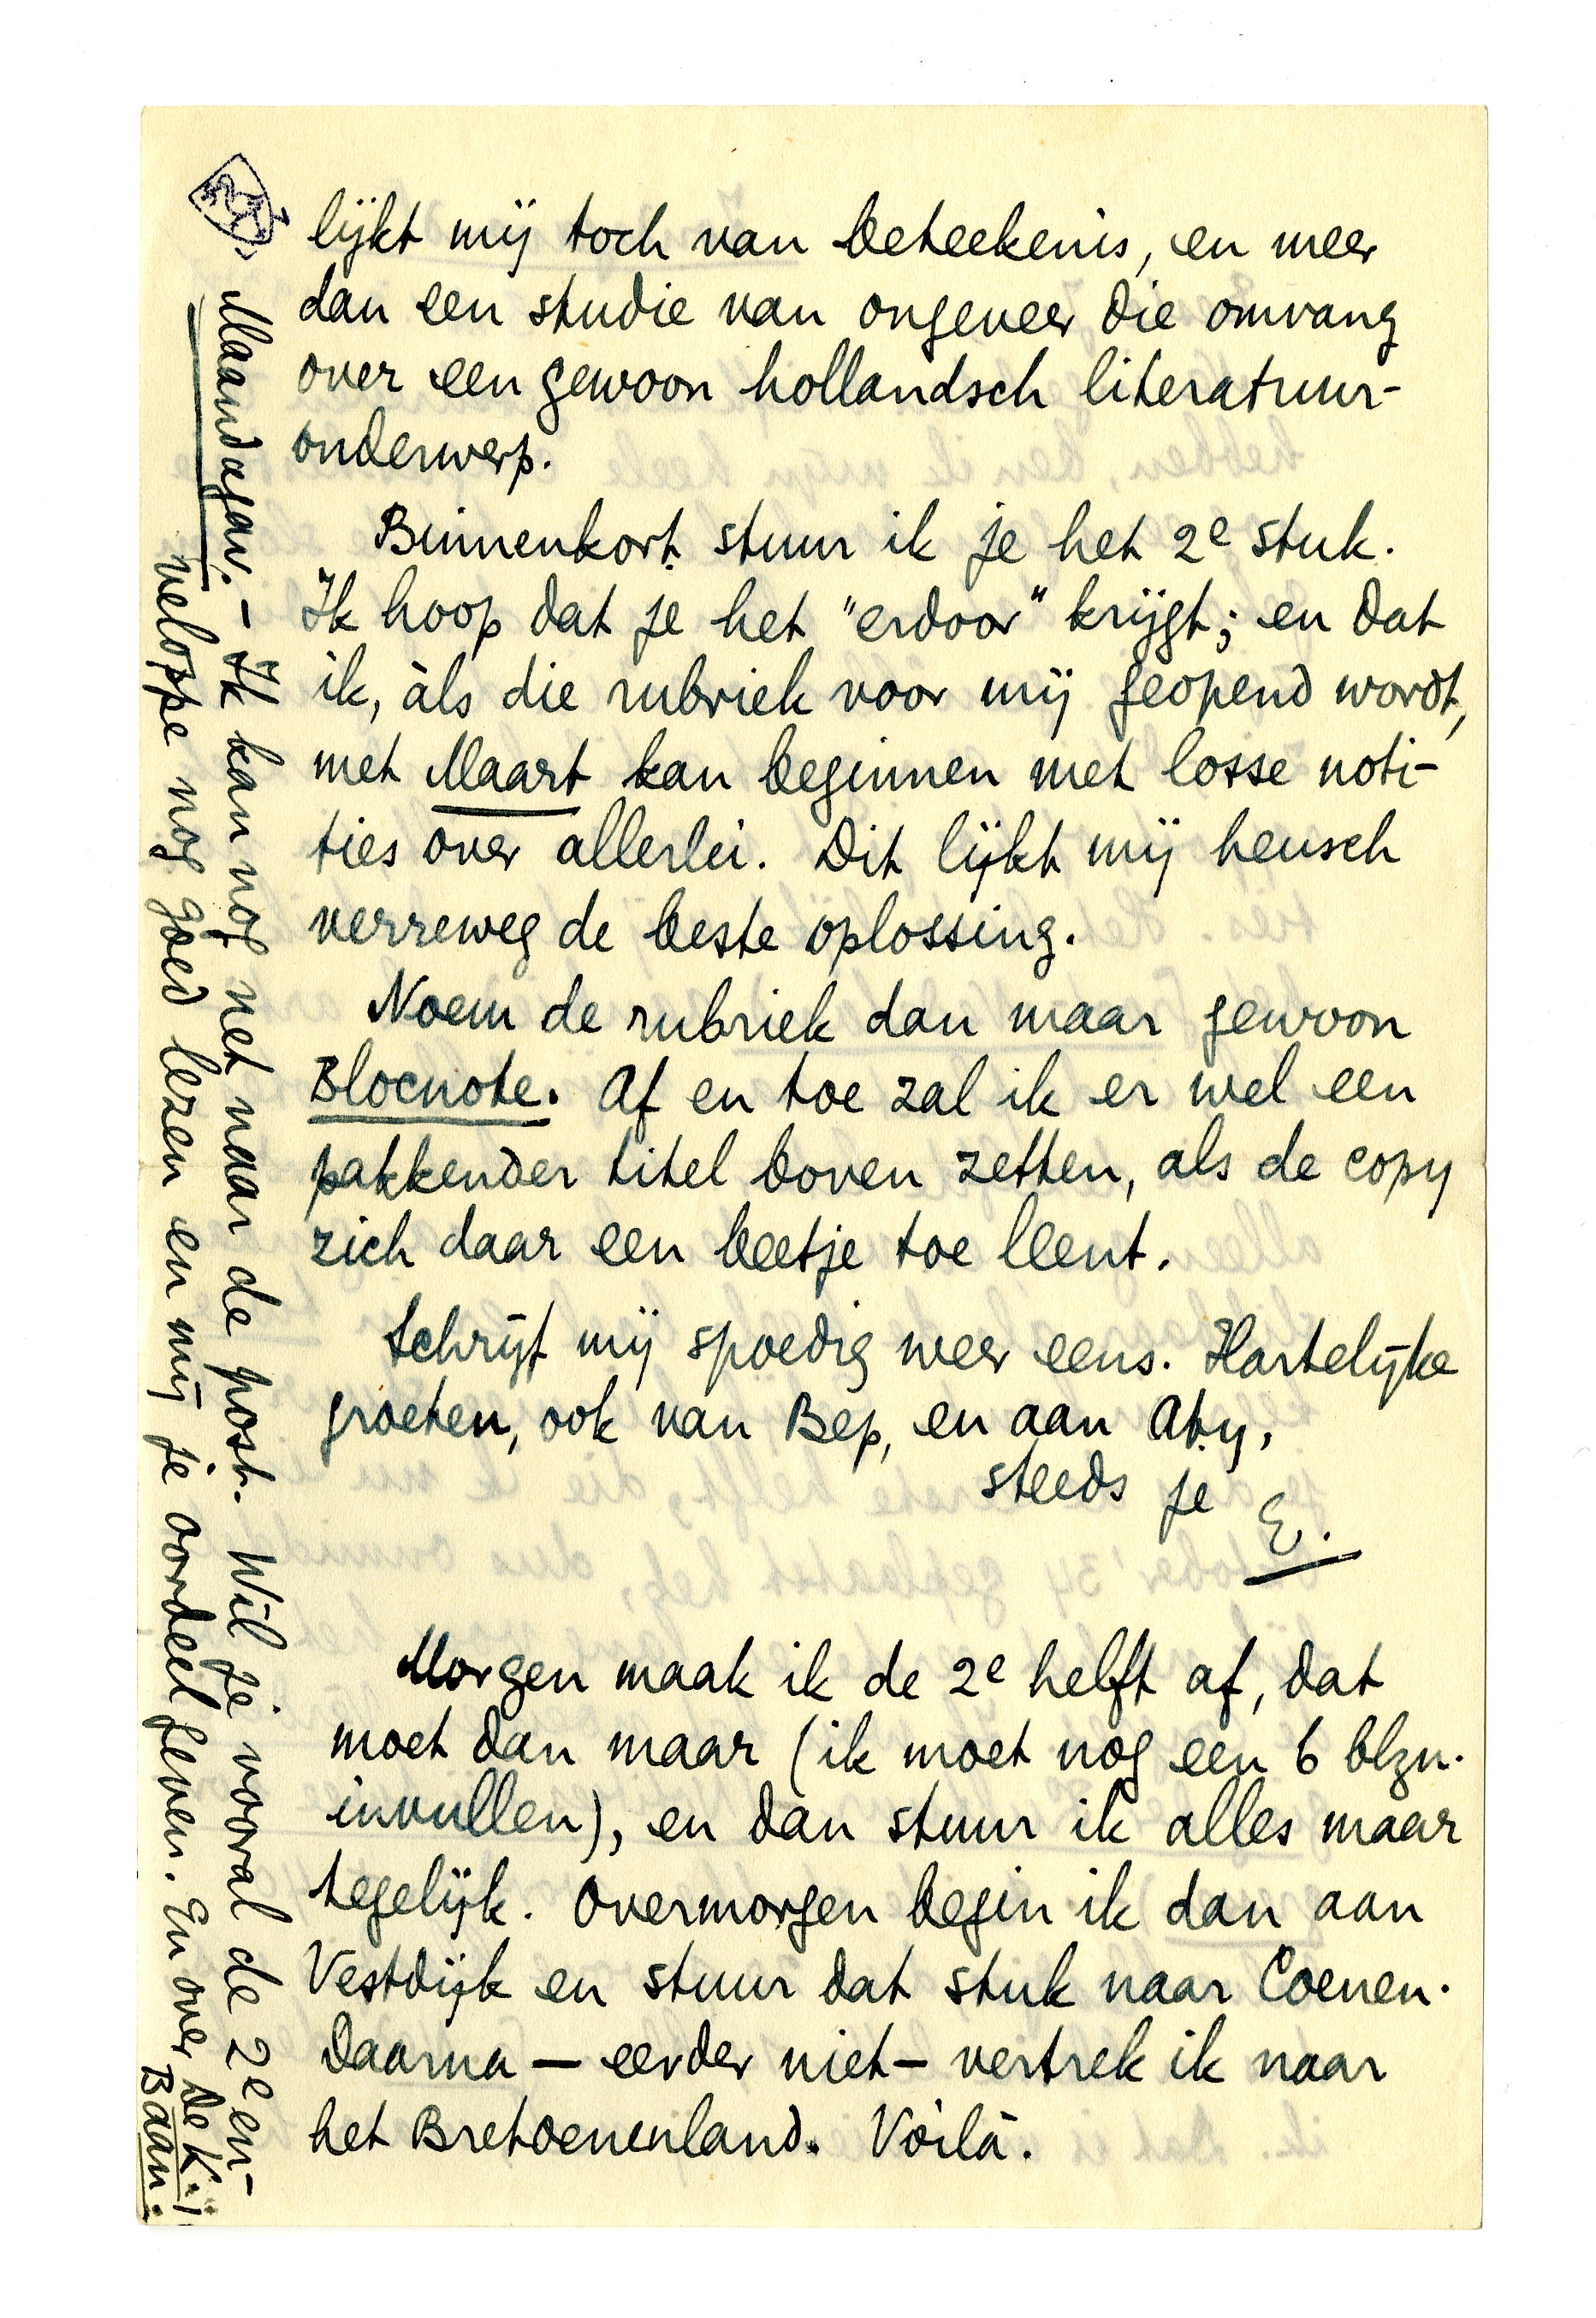 lijkt mij toch van beteekenis, en meer
dan een studie van ongeveer die omvang
over een gewoon hollandsch literatuur-
onderwerp.
Binnenkort stuur ik je het 2e stuk.
Ik hoop dat je het "erdoor" krijgt; en dat
ik, àls die rubriek voor mij geopend wordt,
met Maart kan beginnen met losse noti-
ties over allerlei. Dit lijkt mij heusch
verreweg de beste oplossing.
Noem de rubriek dan maar gewoon
Blocnote. Af en toe zal ik er wel een
pakkender titel boven zetten, als de copy
zich daar een beetje toe leent.
Schrijf mij spoedig weer eens. Hartelijke
groeten, ook van Bep, en aan Aty,
steeds je E.
Morgen maak ik de 2e helft af, dat
moet dan maar (ik moet nog een 6 blzn.
invullen), en dan stuur ik alles maar
tegelijk. Overmorgen begin ik dan aan
Vestdijk en stuur dat stuk naar Coenen.
Daarna — eerder niet — vertrek ik naar
het Bretoenenland. Voilà.
Maandagav. - Ik kan nog net naar de post. Wil je vooral de 2e en-
veloppe nog goed lezen en mij je oordeel geven. En over De K.:
Baan.